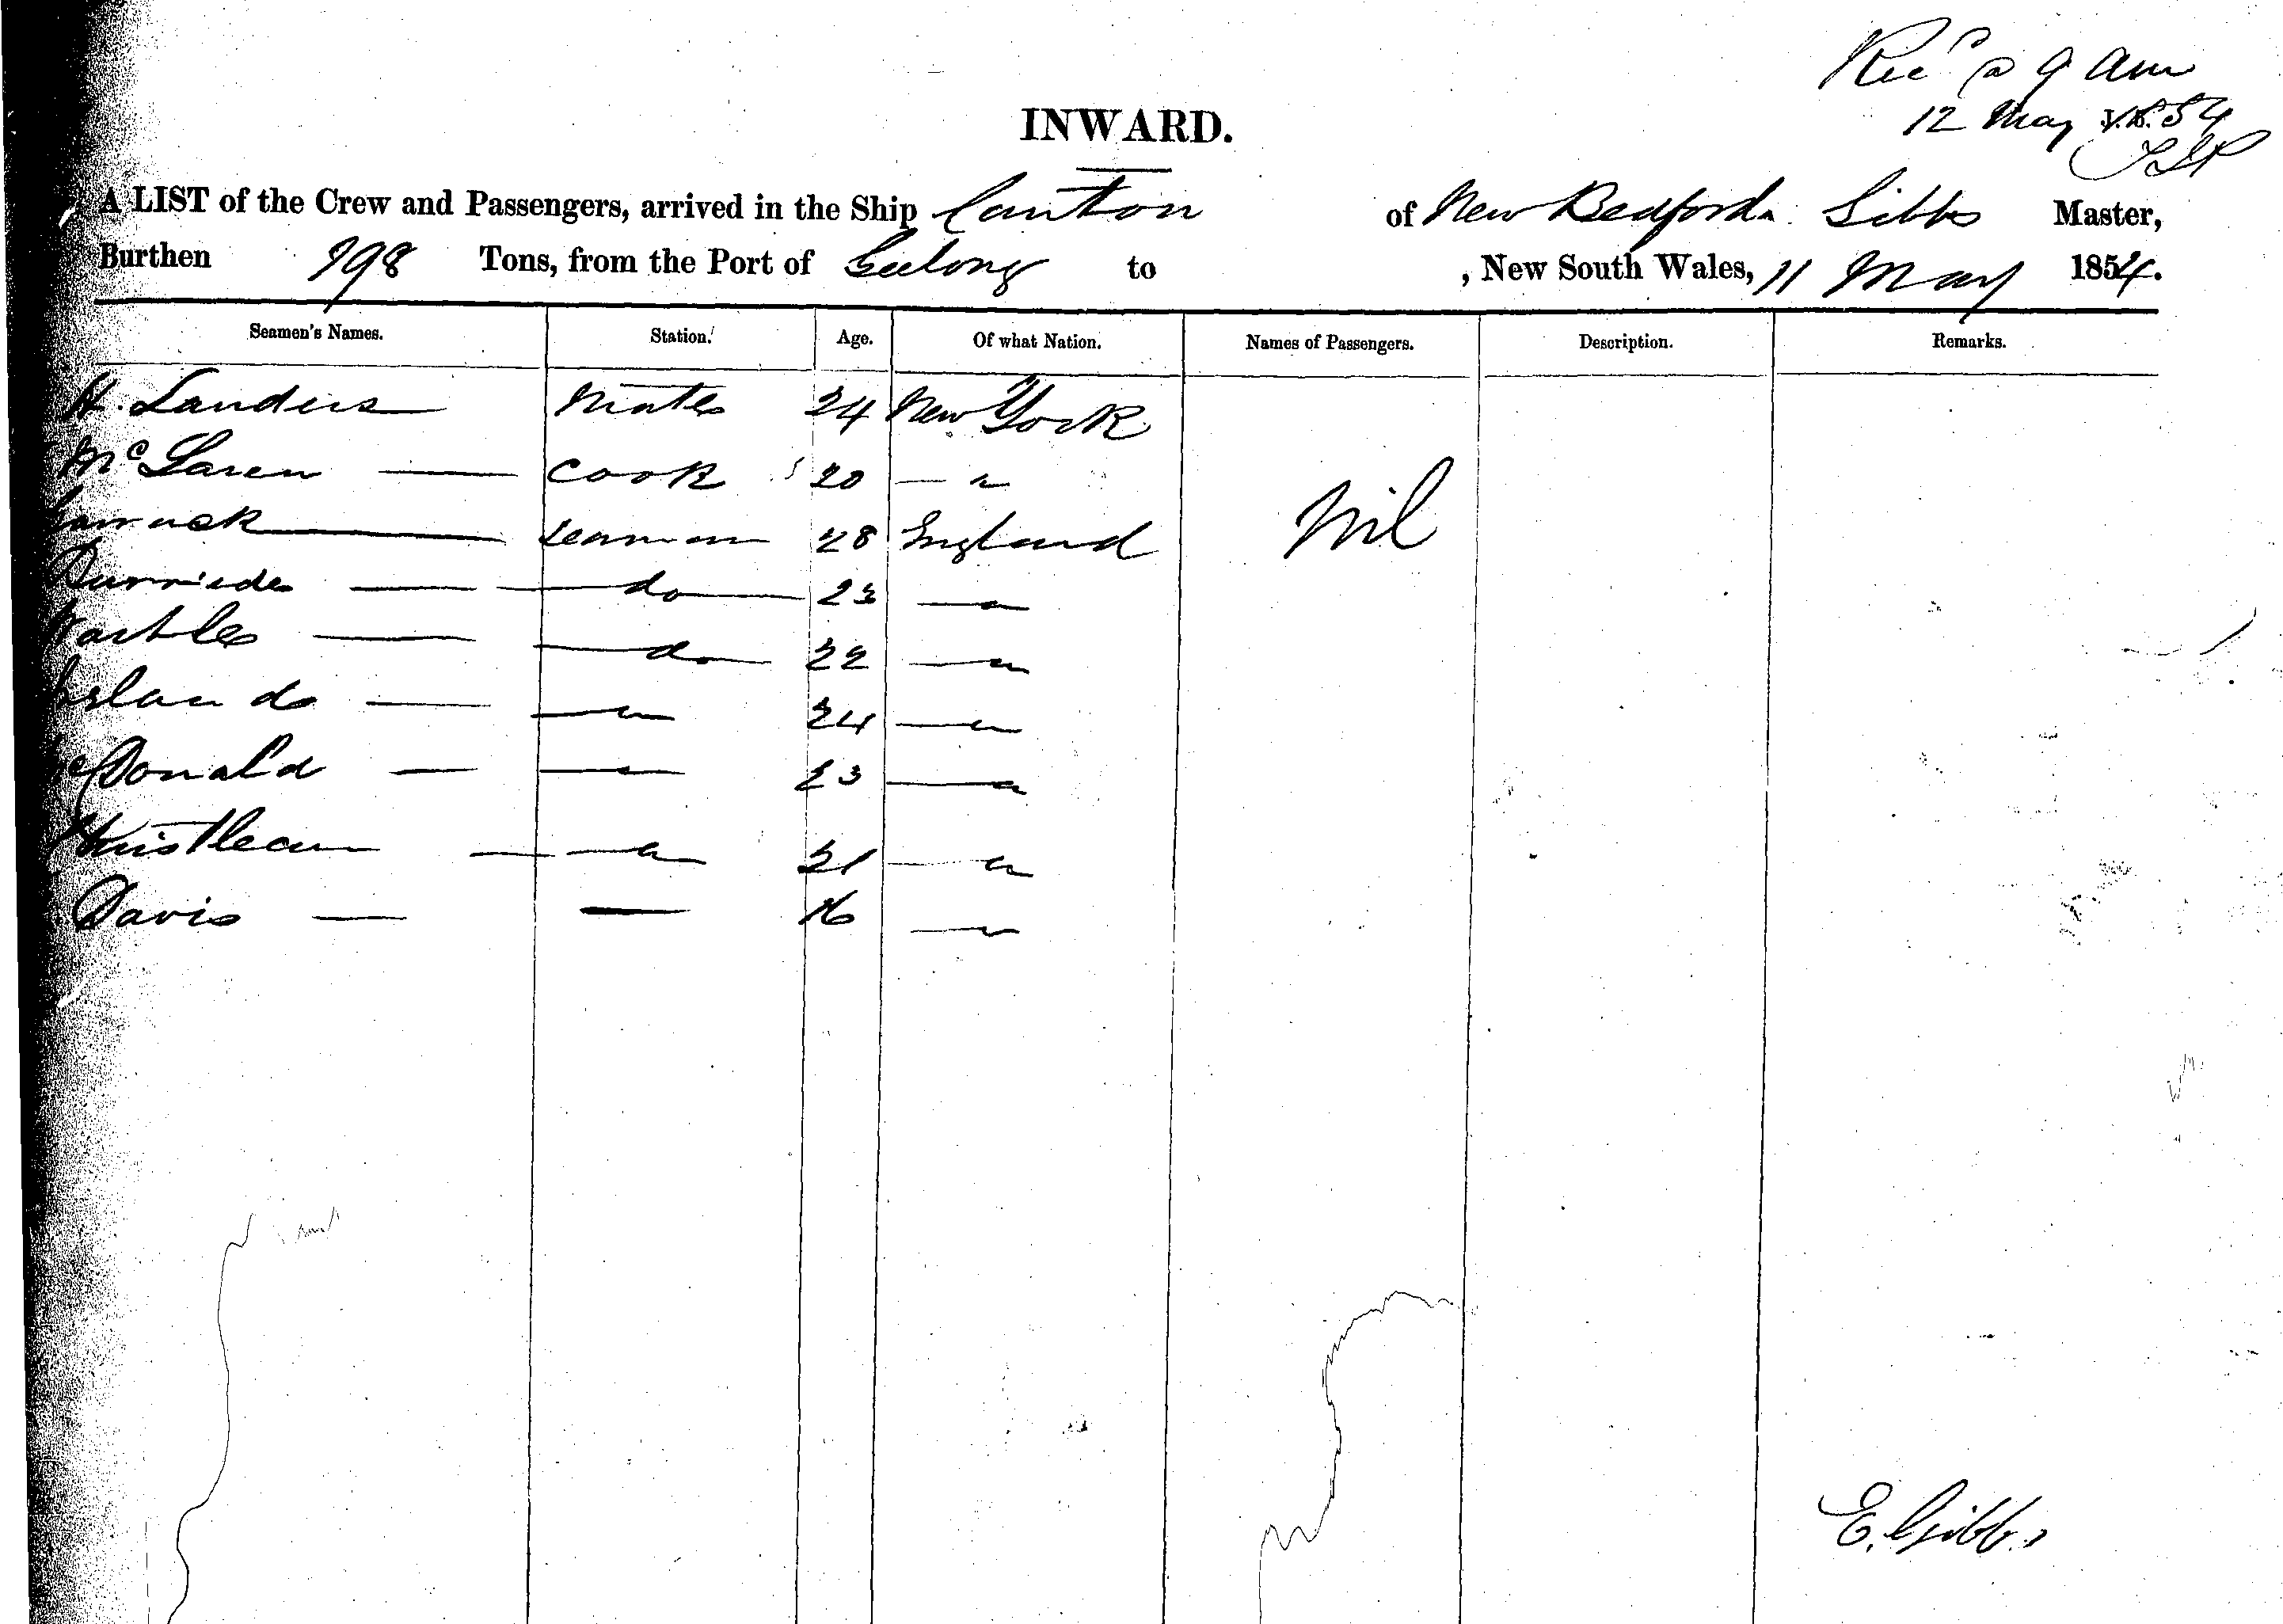 Recd @ 9 am
12 May 1854
INWARD.
A LIST of the Crew and Passengers, arrived in the Ship Canton of New Bedford Gibbs Master,
Burthen 198 Tons, from the Port of Geelong to , New South Wales, 11 May 1854.
Seamen's Names. Station. Age. Of what Nation. Names of Passengers. Description. Remarks.
H. Landers Mate 24 New York
McLaren — Cook 20 — "
seaman 28 England Nil
— do — 23 — "
— do — 22 — "
— — " 24 — "
McDonald — — " 23 — "
— — " 21 — "
Davis — — 16 — "
E. Gibbs